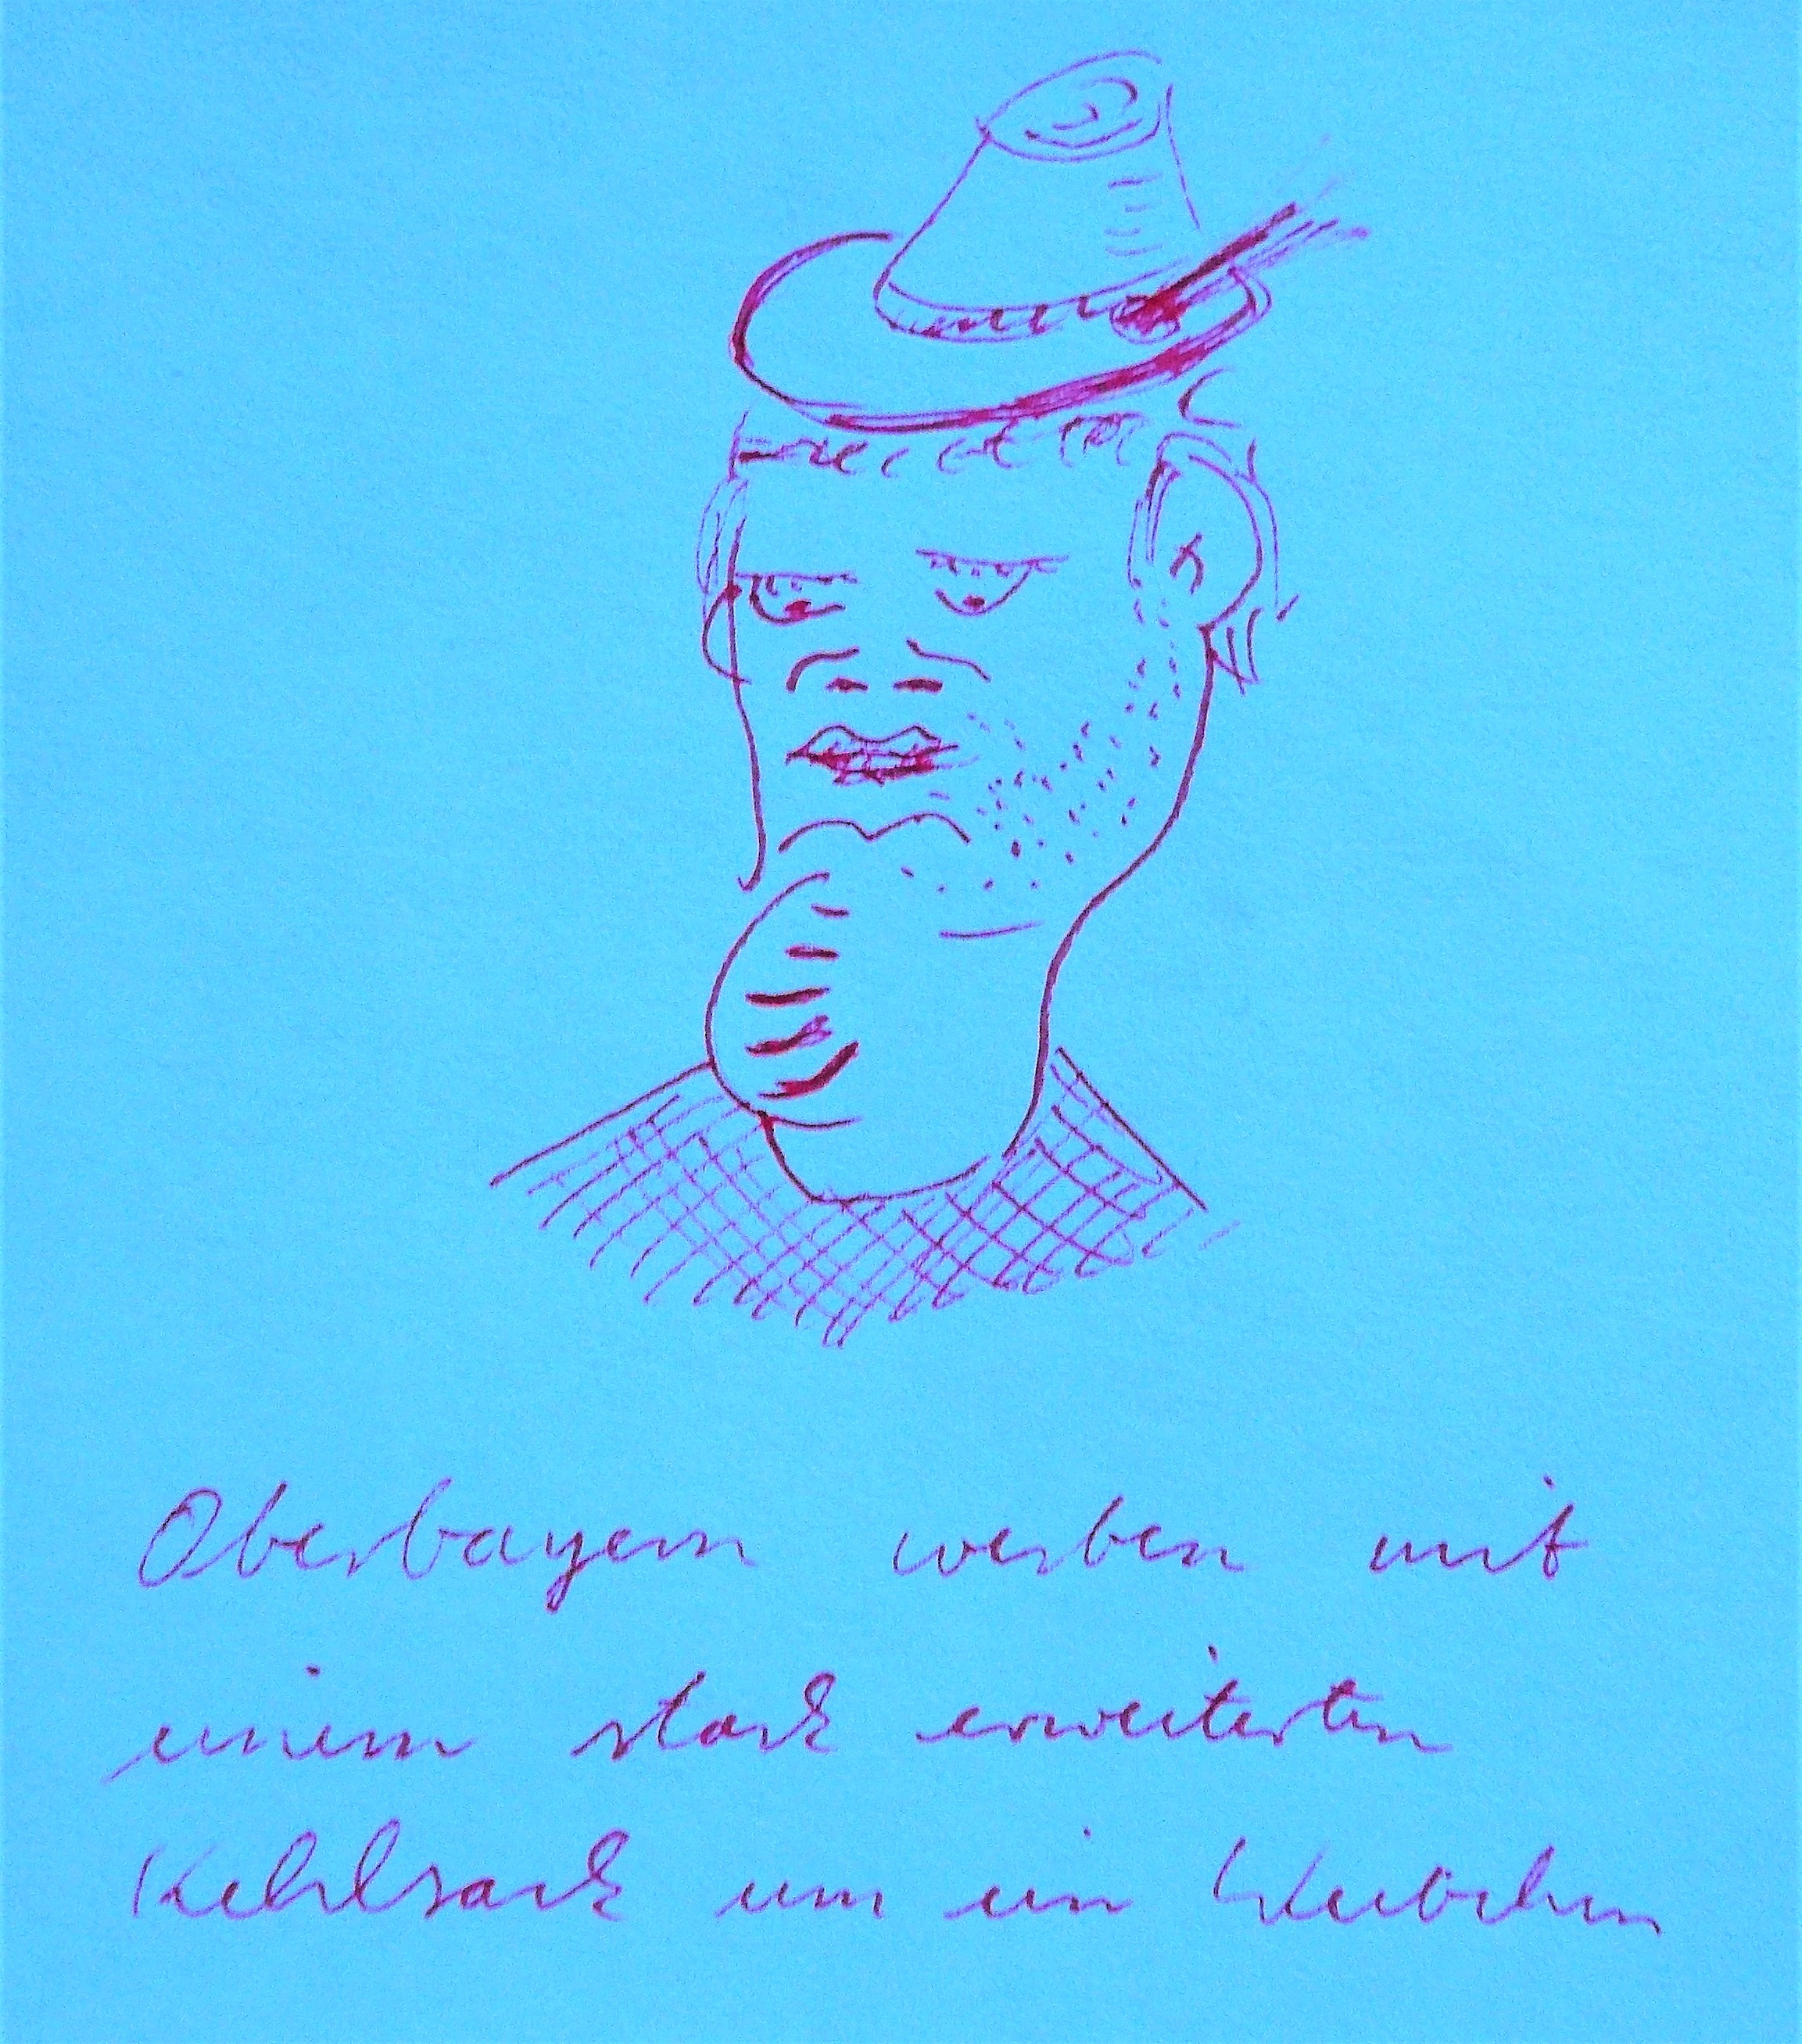 Oberbayern werben mit
einem stark erweiterten
Kehlsack um ein Weibchen